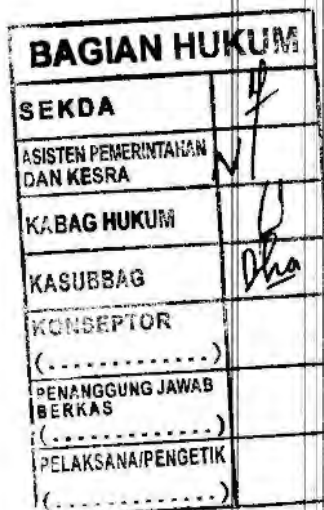 BAGIAN HUKUM
SEKDA
ASISTEN PEMERINTAHAN
DAN KESRA
KABAG HUKUM
KASUBBAG
KONSEPTOR
(.............)
PENANGGUNG JAWAB
BERKAS
(.............)
PELAKSANA/PENGETIK
(.............)